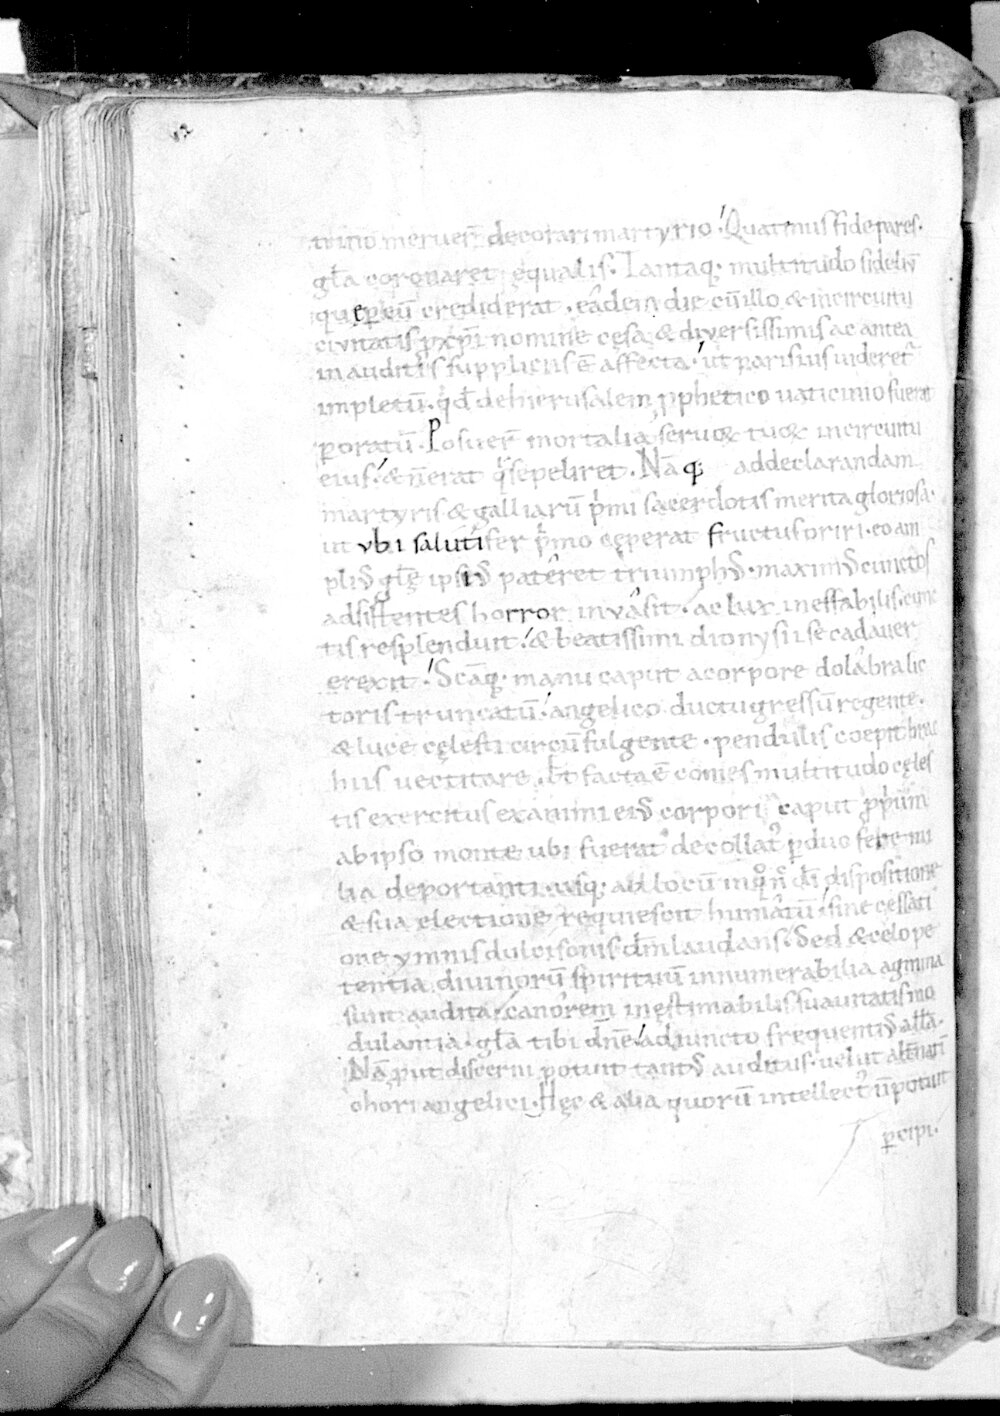 trino meruer̄ decorari martyrio. Quatinus fide pares.
gl̄a coronaret ęqualis. Tantaq; multitudo fideliū
quę ꝑ eū crediderat. eadem die cū illo & incircuitu
civitatis ꝓ xp̄i nomine cęsa & diversissimis ac antea
inauditis suppliciis ē affecta. ut parisius videret̄
impletū. qd̄ dehierusalem ꝓphetico vaticinio fuerat
ꝑoratū. Posuer̄ mortalia servoꝝ tuoꝝ incircuitu
eius. & n̄ erat q sepeliret. Nāq; addeclarandam
martyris & galliarū pimi sacerdotis merita gloriosa.
ut ubi salutifer pimo cęperat fructus oriri. eo am
plius gl̄ę ipsius pateret triumphus. maximus cunctos
adsistentes horror invasit. ac lux ineffabilis cunc
tis resplenduit. & beatissimi dionysii se cadaver
erexit. Scāq; manu caput acorpore dolabra lic
toris truncatū. angelico ductu gressū regente.
& luce cęlesti circūfulgente. pendulis coepit brac
hiis vectitare. Et facta ē comes multitudo cęles
tis exercitus exanimi eius corpori caput ꝓprium
ab ipso monte ubi fuerat decollat ꝑ duo fere mi
lia deportanti. usq; ad locū inquo n̄c dī dispositione
& sua electione requiescit humatū. sine cessati
one ymnis dulcisonis dm̄ laudans. Sed & cęlo pe
tentia divinorū spirituū innumerabilia agmina
sunt audita. canorem inęstimabilis suavitatis mo
dulantia. gl̄a tibi dn̄e. adiuncto frequentius all̄a.
Nā ꝓut discerni potuit tantus auditus. velut alt̄nati
chori angelici. Hęc & alia quorū intellect n̄ potuit
ꝑcipi.